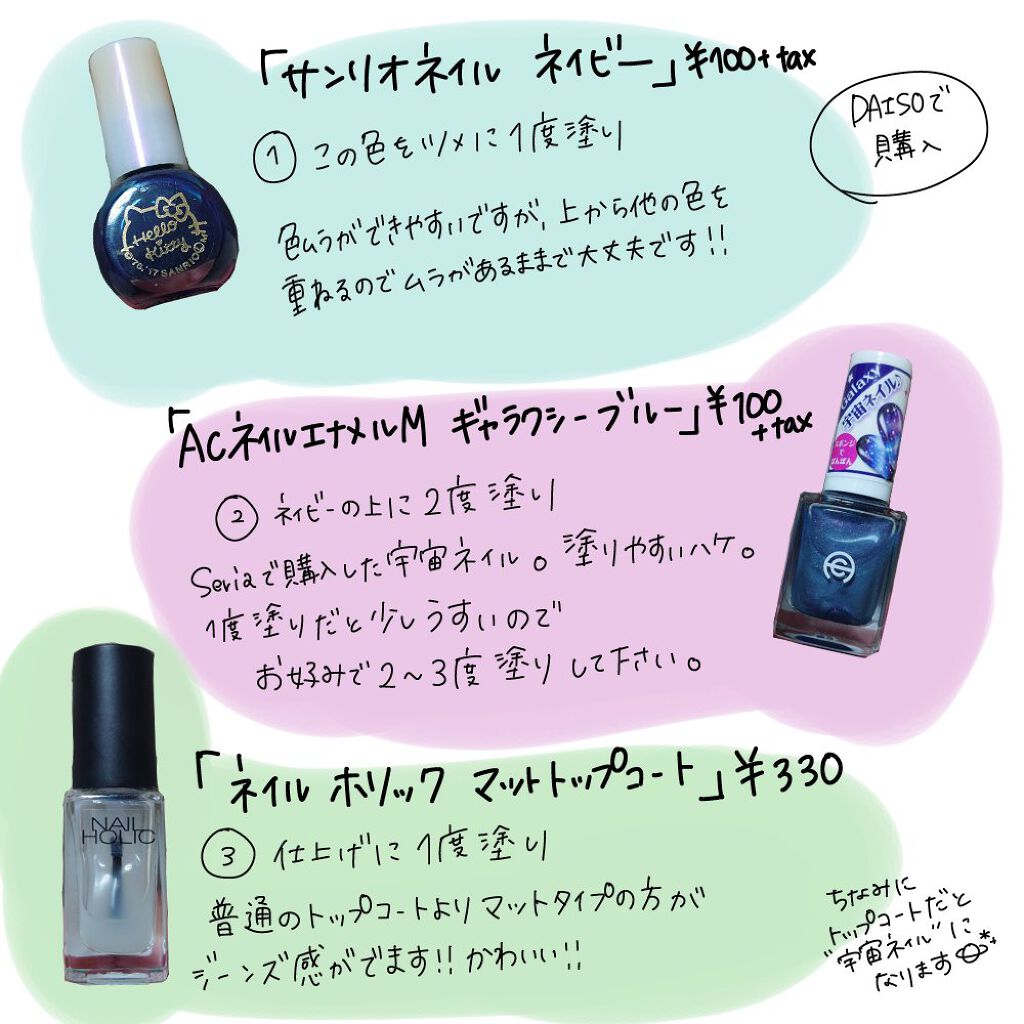 「サンリオネイル ネイビー」¥100+tax
DAISOで
購入
① この色をツメに1度塗り
色ムラができやすいですが、上から他の色を
重ねるのでムラがあるままで大丈夫です!!
Hello
Kitty
©'76,'17 SANRIO
「ACネイルエナメルM ギャラクシーブルー」¥100
+tax
② ネイビーの上に2度塗り
Seriaで購入した宇宙ネイル。塗りやすいハケ。
1度塗りだと少しうすいので
お好みで2〜3度塗りして下さい。
Galaxy
宇宙ネイル♪
スポンジで
ぽんぽん
「ネイルホリック マットトップコート」¥330
③ 仕上げに1度塗り
普通のトップコートよりマットタイプの方が
ジーンズ感がでます!!かわいい!!
NAIL
HOLIC
ちなみに
トップコートだと
"宇宙ネイル"に
なります